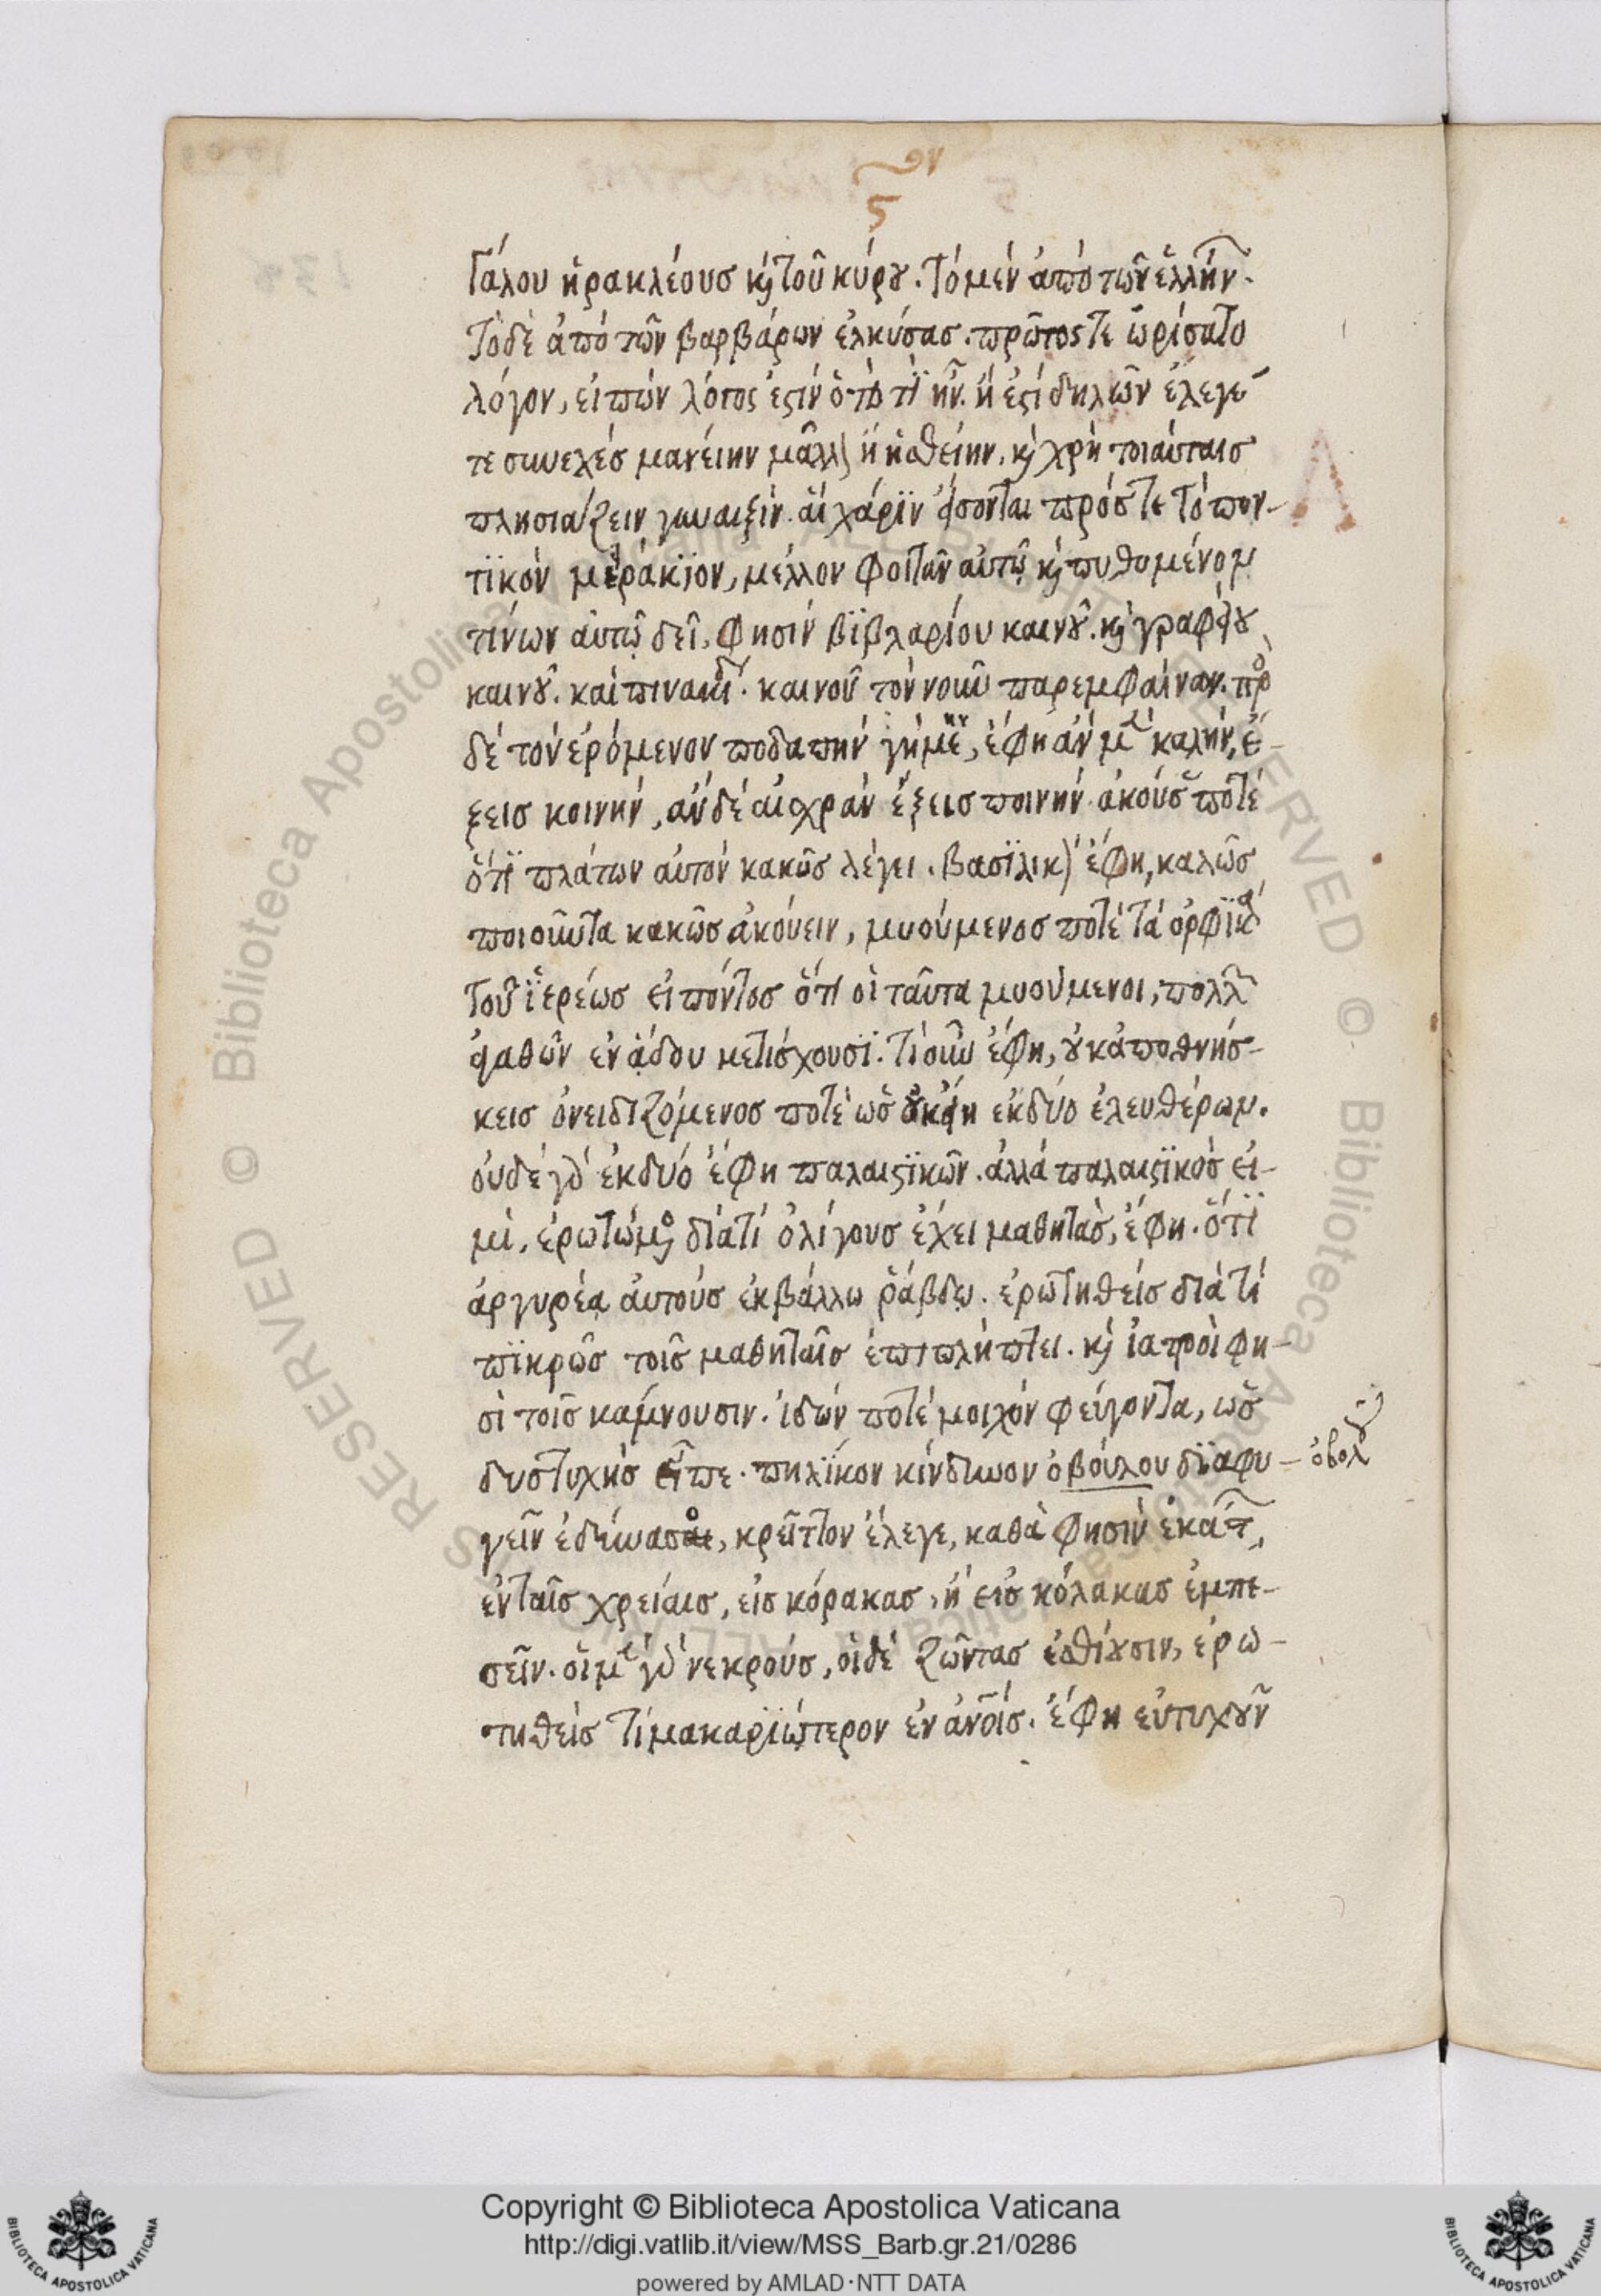 ον
ς
γάλου ἡρακλέους κỳ τοῦ κύρȣ. τὸ μὲν ἀπὸ τῶν ἑλλήν.
τὸ δὲ ἀπὸ τῶν βαρβάρων ἑλκύσας. πρῶτος τε ὡρίσατο
λόγον, εἰπὼν λόγος ἐστὶν ὁ τὸ τί ἦν. ἢ ἐστὶ δηλῶν ἔλεγέ
τε συνεχὲς μανείην μᾶλλ ἢ ἡσθείην, κỳ χρὴ τοιάυταις
πλησιάζειν γυναιξὶν. αἳ χάριν εἴσονται πρός τε τὸ πον-
τϊκὸν μειράκϊον, μέλλον φοιτᾶν αὐτῷ κỳ πυθομένομ
τίνων αὐτῷ δεῖ, φησὶν βϊβλαρίου καινȣ. κỳ γραφείȣ
καινȣ. καὶ πινακιδί. καινοῦ τὸν νοῦν παρεμφαίνων. πρὸ
δὲ τὸν ἐρόμενον ποδαπὴν γήμῃ, ἔφη ἂν μ καλὴν, ἕ-
ξεις κοινήν, ἂν δὲ αἰσχρὰν ἕξεις ποινήν. ἀκούσ ποτὲ
ὅτι πλάτων αὐτὸν κακῶς λέγει. βασϊλικ) ἔφη, καλῶς
ποιοῦντα κακῶς ἀκούειν, μυούμενος ποτὲ τὰ ὀρφϊκ
τοῦ ϊερέως εἰπόντος ὅτι οἱ ταῦτα μυούμενοι, πολλ
ἀγαθῶν ἐν ᾅδου μετίσχουσϊ. τί οὖν ἔφη, ȣκ ἀποθνήσ-
κεις ὀνειδιζόμενος ποτὲ ὡς ȣκ εἴη ἐκ δύο ἐλευθέρωμ.
οὐδὲ γὰρ ἐκ δυό ἔφη παλαιστϊκῶν. ἀλλὰ παλαιστϊκὸς εἰ-
μὶ, ἐρωτώμ διὰ τί ὀλίγους ἔχει μαθητὰς, ἔφη. ὅτϊ
ἀργυρέᾳ αὐτοὺς ἐκβάλλω ῥάβδῳ. ἐρωτηθεὶς διὰ τί
πϊκρῶς τοῖς μαθηταῖς ἐπιπλήττει. κỳ ἰατροὶ φη-
σὶ τοῖς κάμνουσιν. ἰδὼν ποτὲ μοιχὸν φεύγοντα, ὦ
δυστυχὴς εἶπε. πηλίκον κίνδυνον ὀβούλου δϊαφυ-
ὀβολ
γεῖν ἐδύνασο, κρεῖττον ἔλεγε, καθὰ φησὶν ἑκάτ,
ἐν ταῖς χρείαις, εἰς κόρακας, ἢ εἰς κόλακας ἐμπε-
σεῖν. οἱ μ γὰρ νεκρούς, οἱ δὲ ζῶντας ἐσθίȣσιν, ἐρω-
τηθεὶς τί μακαριώτερον ἐν ἀνοις. ἔφη εὐτυχȣν
Copyright © Biblioteca Apostolica Vaticana
http://digi.vatlib.it/view/MSS_Barb.gr.21/0286
powered by AMLAD·NTT DATA